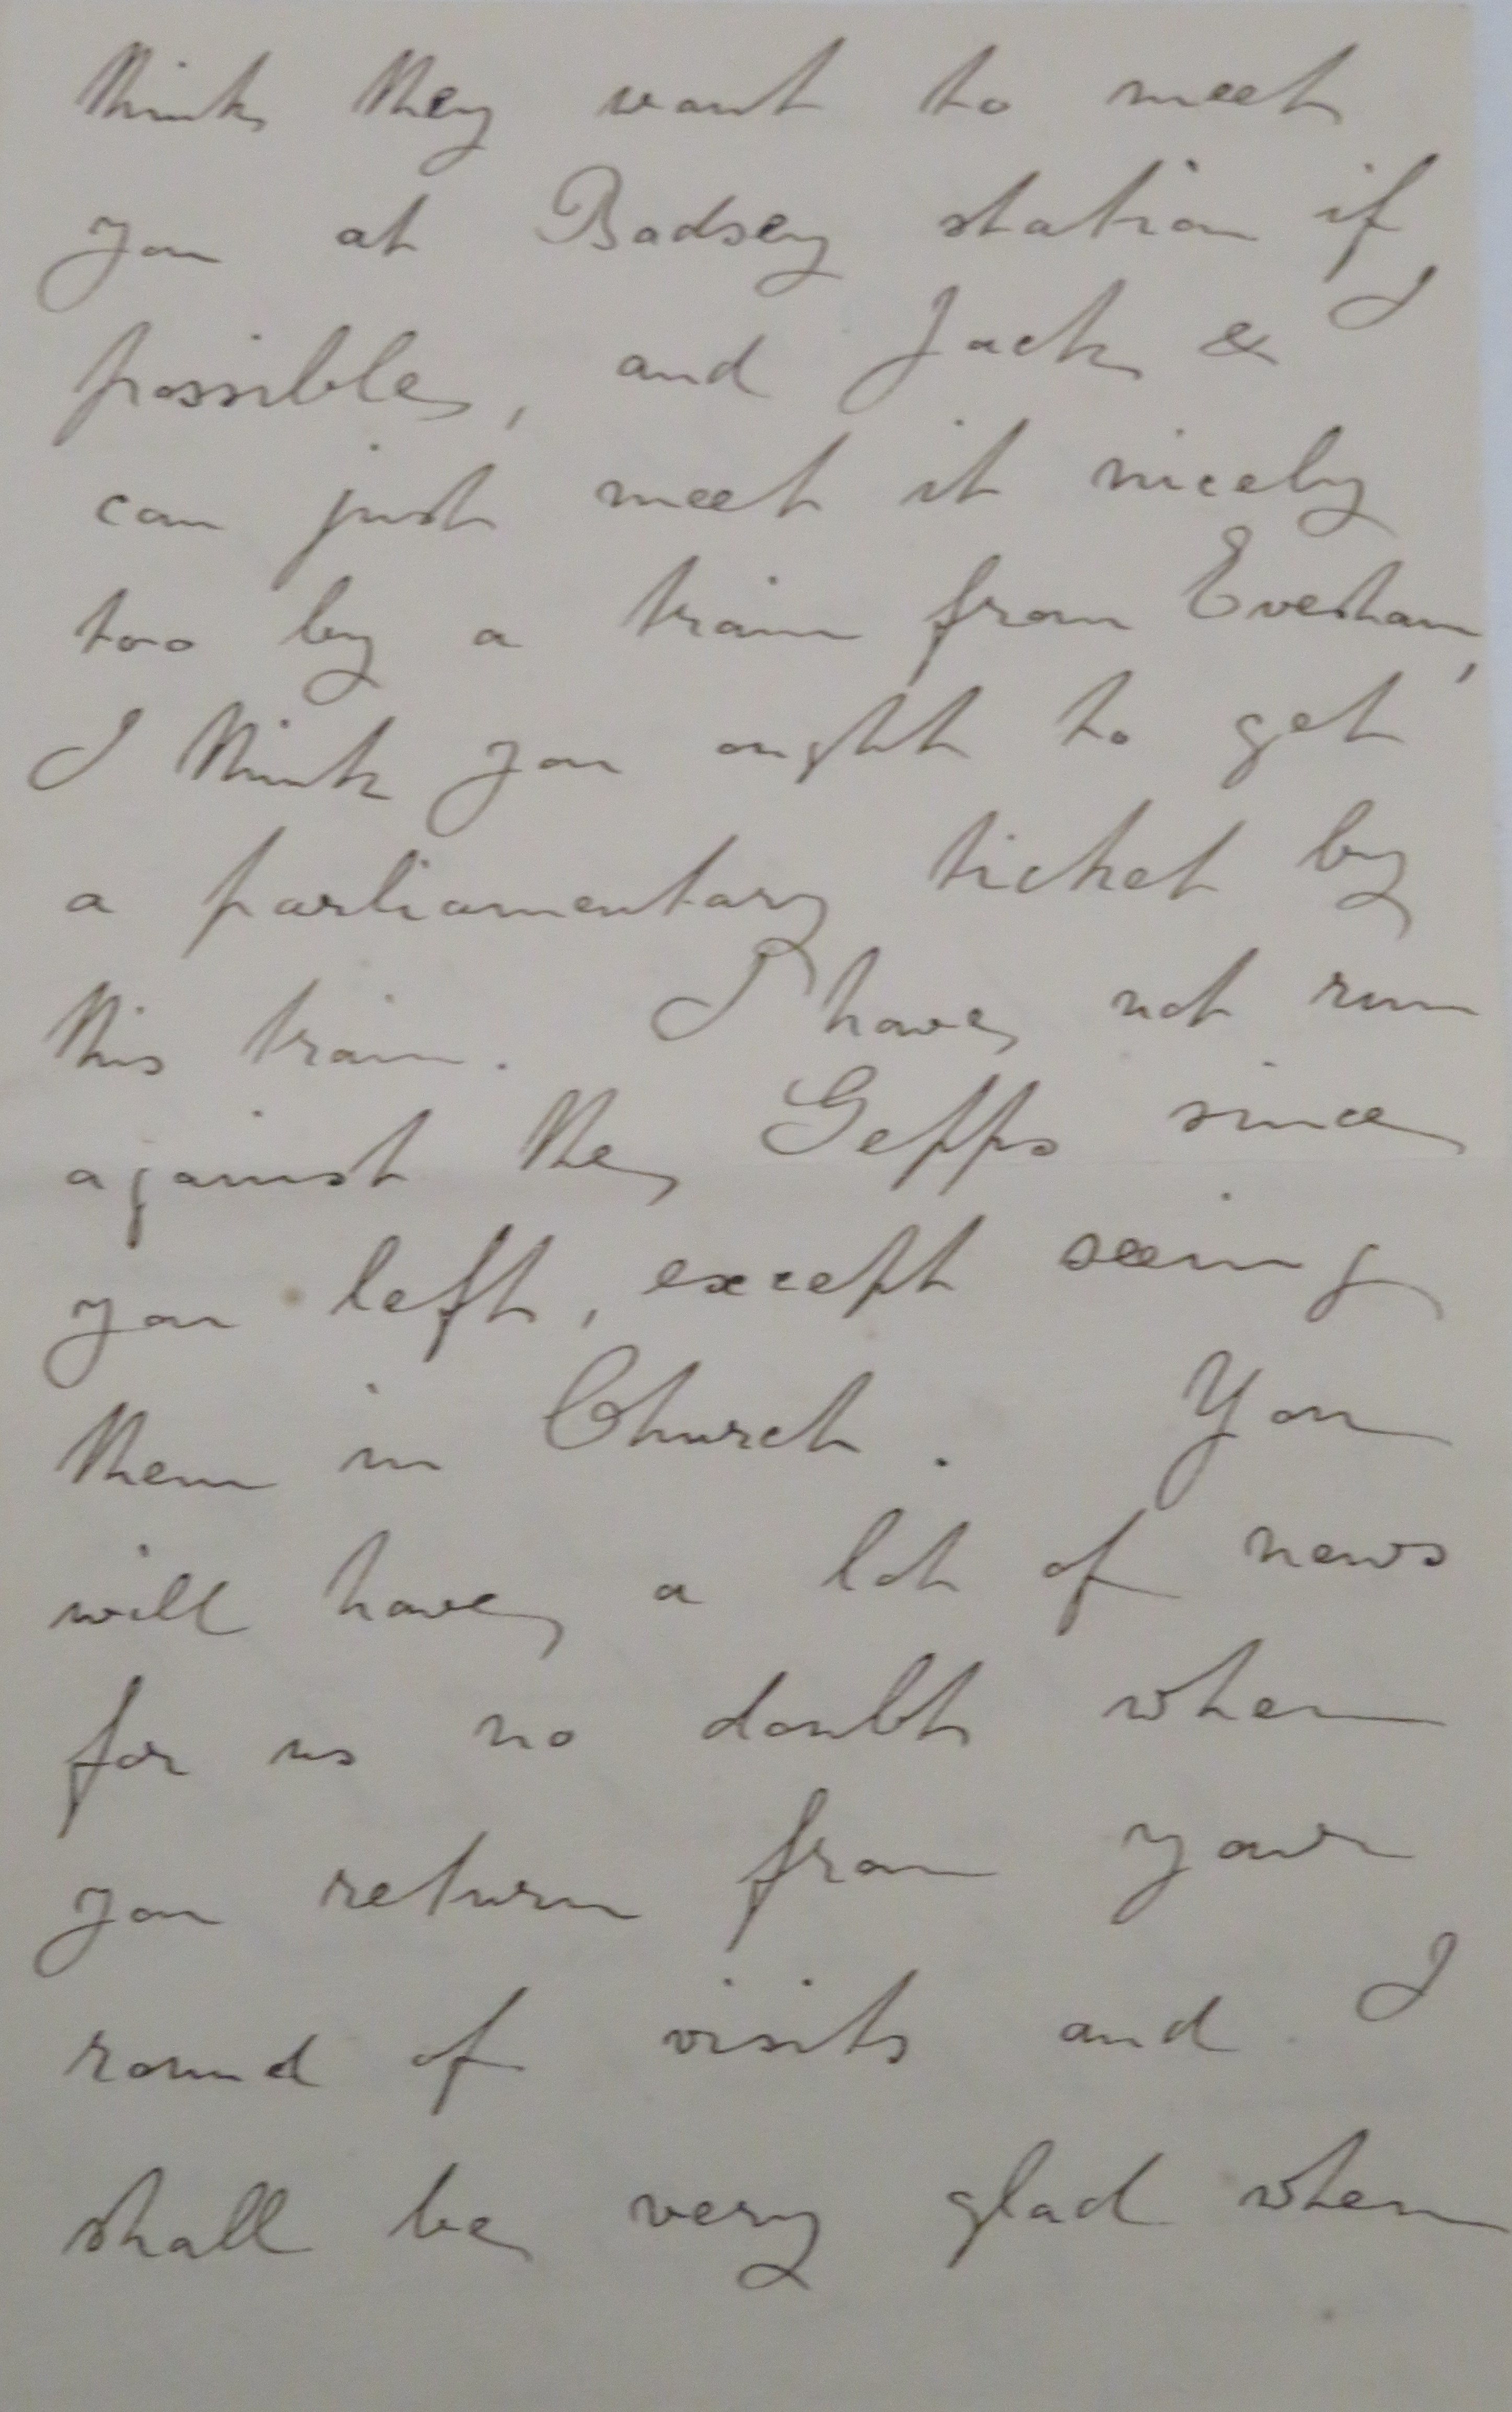 think they want to meet
you at Badsey station if
possible, and Jack & I
can just meet it nicely
too by a train from Evesham,
I think you ought to get
a parliamentary ticket by
this train. I have not run
against the Gepps since
you left, except seeing
them in Church. You
will have a lot of news
for us no doubt when
you return from your
round of visits and I
shall be very glad when